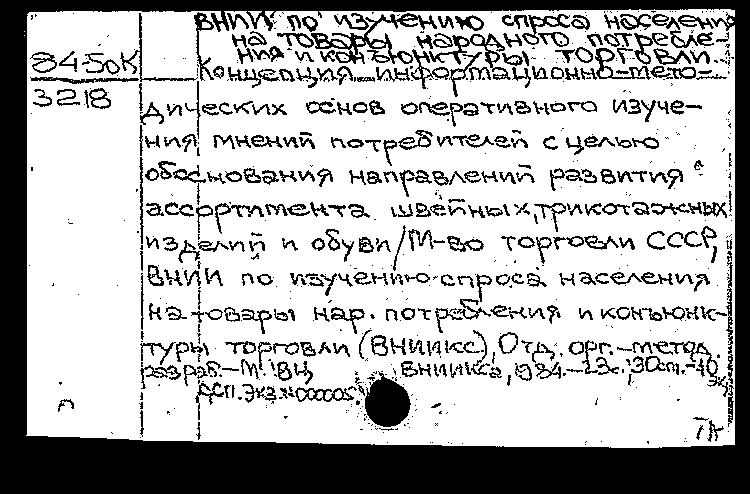 ВНИИ по изучению спроса населения
на товары народного потребле-
ния и конъюнктуры торговли
84-50К
Концепция информационно-мето-
3218
дических основ оперативного изуче-
ния мнений потребителей с целью
обоснования направлений развития
ассортимента швейных, трикотажных
изделий и обуви/М-во торговли СССР,
ВНИИ по изучению спроса населения
на товары нар. потребления и конъюнк-
туры торговли (ВНИИКС), Отд. орг.-метод.
разраб.-М.: ВЦ ВНИИКСа, 1984.-23с.; 30см.-40
экз
ДСП. Экз.№000005.
П
ТК